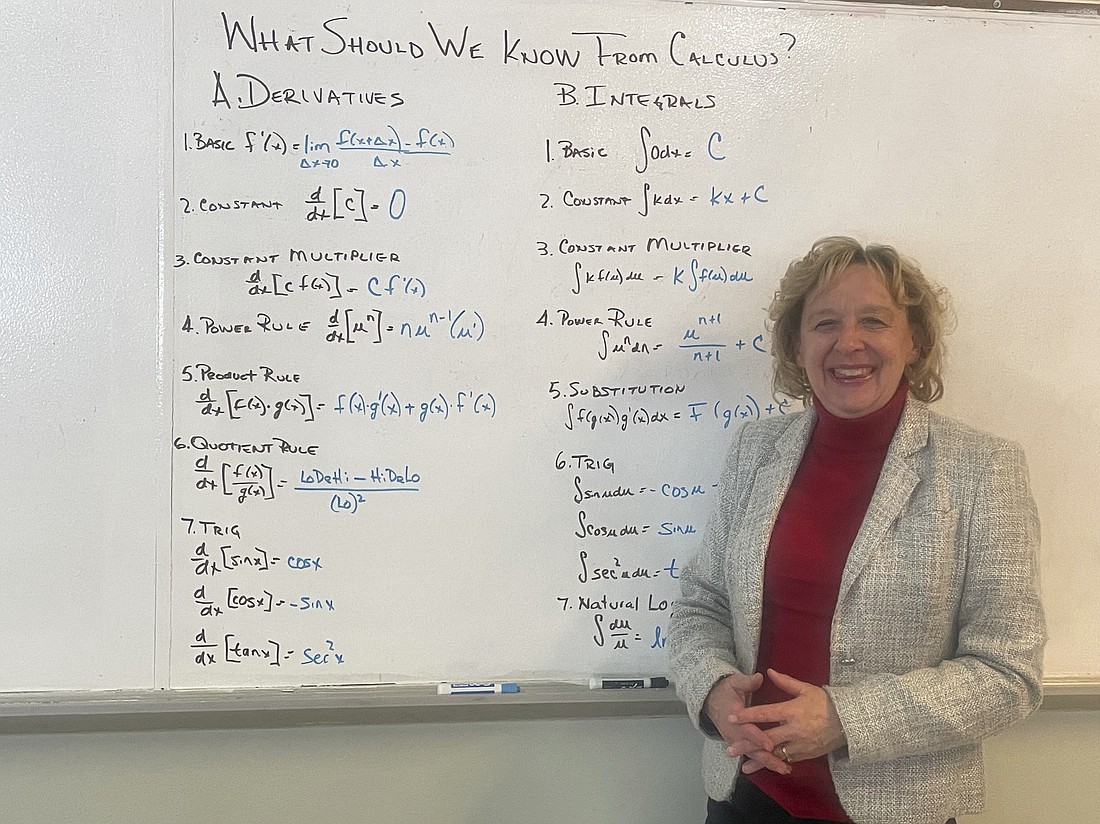 WHAT SHOULD WE KNOW FROM CALCULUS?
A. DERIVATIVES
1. BASIC f'(x) = lim Δx→0 f(x+Δx) - f(x) / Δx
2. CONSTANT d/dx [c] = 0
3. CONSTANT MULTIPLIER
d/dx [c f(x)] = c f'(x)
4. POWER RULE d/dx [u^n] = nu^n-1 (u')
5. PRODUCT RULE
d/dx [f(x)·g(x)] = f(x)·g'(x) + g(x)·f'(x)
6. QUOTIENT RULE
d/dx [f(x)/g(x)] = LoDeHi - HiDeLo / (Lo)²
7. TRIG
d/dx [sinx] = cosx
d/dx [cosx] = -sinx
d/dx [tanx] = sec²x
B. INTEGRALS
1. BASIC ∫0dx = C
2. CONSTANT ∫kdx = kx + C
3. CONSTANT MULTIPLIER
∫kf(u)du = k∫f(u)du
4. POWER RULE
∫u^n dn = u^n+1 / n+1 + C
5. SUBSTITUTION
∫f(g(x))g'(x)dx = F(g(x)) + C
6. TRIG
∫sinudu = -cosu -
∫cosudu = sinu
∫sec²udu = t
7. Natural Lo
∫du/u = ln